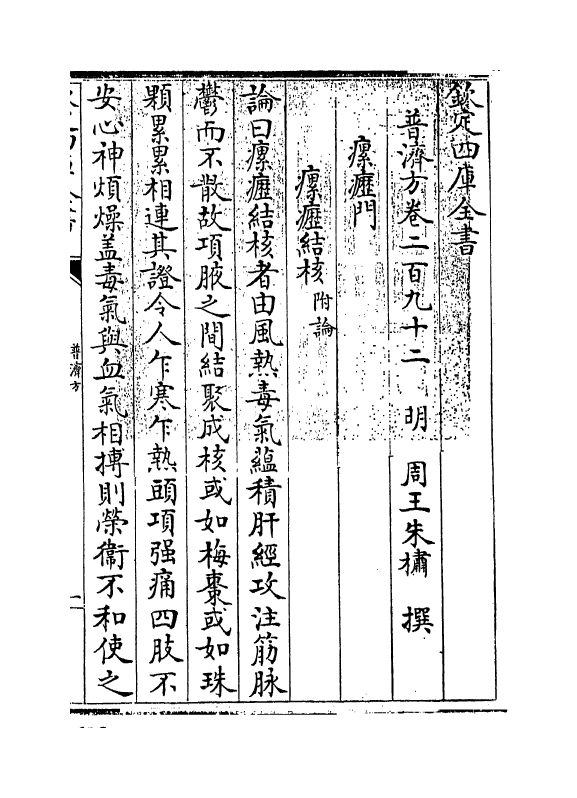 欽定四庫全書
普濟方卷二百九十二　明　周王朱橚　撰
瘰癧門
瘰癧結核附論
論曰瘰癧結核者由風熱毒氣蘊積肝經攻注筋脉
鬱而不散故項腋之間結聚成核或如梅棗或如珠
顆累累相連其證令人乍寒乍熱頭項强痛四肢不
安心神煩燥盖毒氣與血氣相搏則榮衞不和使之
普濟方